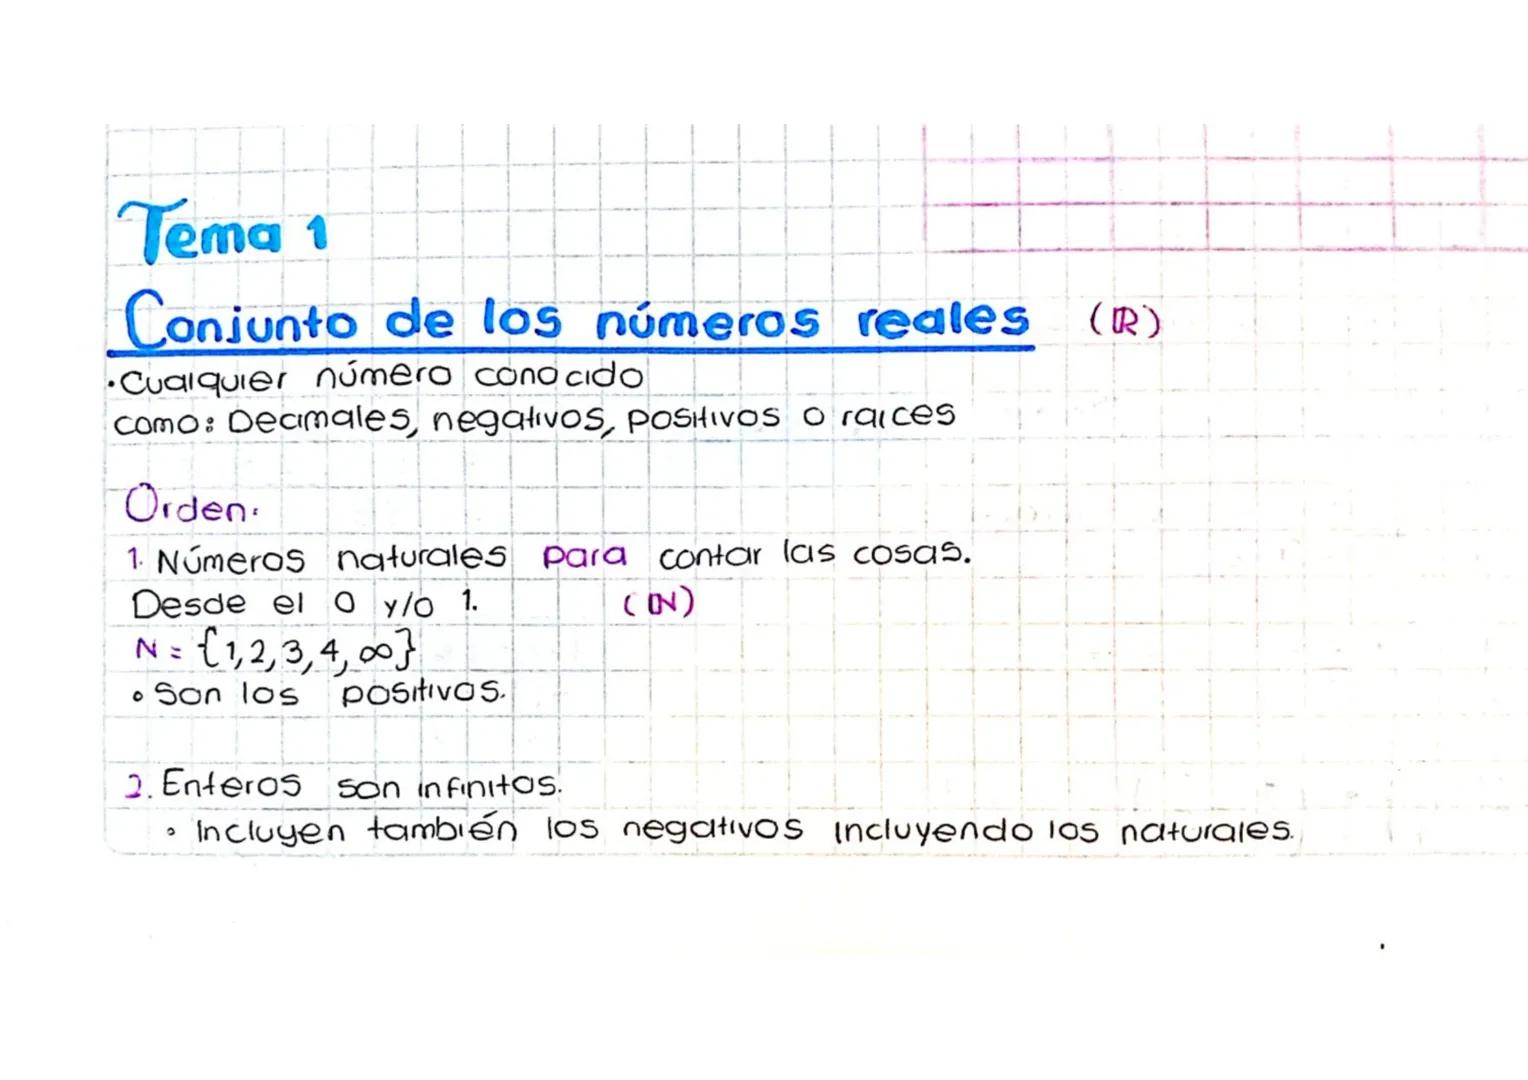 Tema 1
Conjunto de los números reales (ℝ)
•Cualquier número conocido
como: Decimales, negativos, positivos o raices
Orden:
1. Números naturales para contar las cosas.
Desde el 0 y/o 1. (ℕ)
N = {1,2,3,4,∞}
• Son los positivos.
2. Enteros son infinitos.
• Incluyen también los negativos incluyendo los naturales.